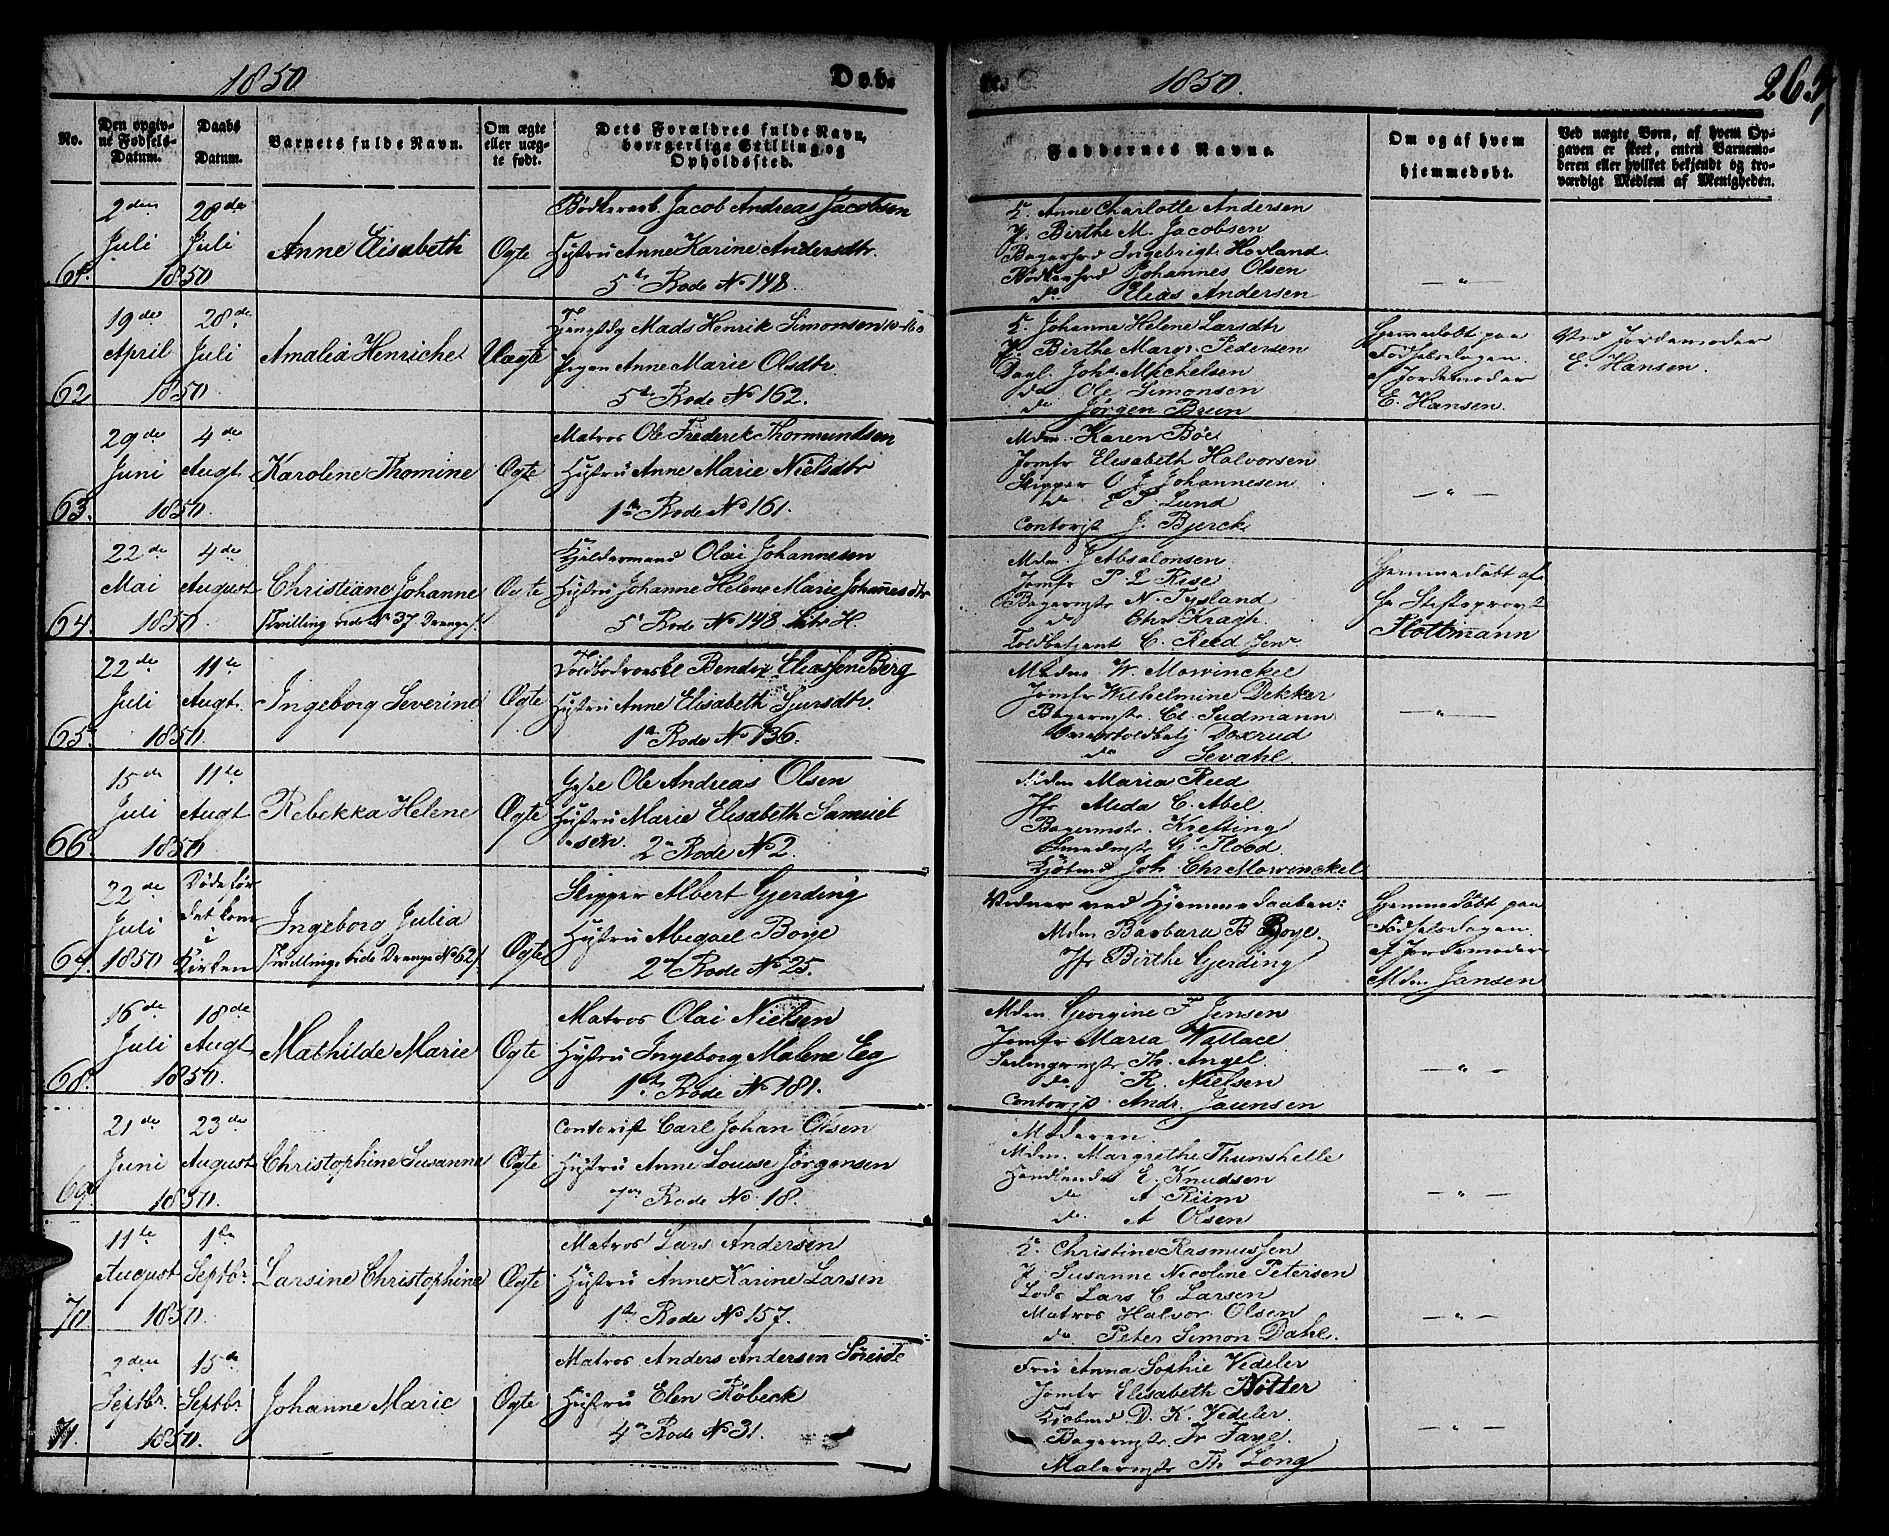 1850 Døb- te. 1850. 265
No. Den opgivne Fødsels-Datum. Daabs Datum. Barnets fulde Navn. Om ægte eller uægte født. Dets Forældres fulde Navn, borgerlige Stilling og Opholdssted. Faddernes Navne. Om og af hvem hjemmedøbt. Ved uægte Børn, af hvem Opgaven er skeet, enten Barnemoderen eller hvilket bekjendt og troværdigt Medlem af Menigheden.
2den 28de Jacob Andreas Jacobsen
Juli Juli Anne Elisabeth Ægte Hustru Anne Karine Andersdtr.
61. 1850 5te Rode No 148.
K. Anne Charlotte Andersen
P. Birthe M. Jacobsen
Ingebrigt Hovland
Johannes Olsen
do Elias Andersen
— " —
19de 28de Mads Henrik Simonsen
April Juli Amalia Henriche Uægte Pigen Anne Marie Olsdtr.
62 1850 5te Rode No 162.
K. Johanne Helene Larsdtr
P. Birthe Margr. Pedersen
Dagl. Johs Michelsen
do Ole Simonsen
do Jørgen Brun
Hjemmedøbt paa
Fødselsdagen
af Jordemoder
E. Hansen.
Ved Jordemoder
E. Hansen.
29de 4de Matros Ole Frederek Thormundsen
Juni Augt. Karoline Thomine Ægte Hustru Anne Marie Nielsdtr
63. 1850. 1te Rode No 161.
Mdm. Karen Böe
Jomfr Elisabeth Halvorsen
Skipper O J Johannesen
do E P Lund
Contorist J. Bjerck
— " —
22de 4de Olai Johannesen
Mai August Christiane Johanne Ægte Hustru Johanne Helene Marie Johannesdtr
64. 1850. Tvilling vide No 37 Drenge 5te Rode No 148 Litr H.
Mdm. J Absalonsen
Jomfr P L Rise
Bagermstr N. Tysland
do Chr Kragh.
Toldbetjent C. Reed Senr
Hjemmedøbt af
Hr Stiftsprovst
Flottmann
22de 11te Bendix Eliassen Berg
Juli Augt. Ingeborg Severine Ægte Hustru Anne Elisabeth Sjursdtr.
65. 1850. 1te Rode No 136.
Mdm W. Mowinckel
Jomfr Wilhelmine Dekker
Bagermstr. Cl. Sudmann
Overtoldbetj Doxrud
do Sevahl
— " —
15de 11te Ole Andreas Olsen
Juli Augt Rebekka Helene Ægte Hustru Marie Elisabeth Samuel
66. 1850 -sen. 2n Rode No 2.
Mdm Maria Reed
Jfr Alida C. Abel
Bagermstr. Krefting
G. Flood
Kjøbmd Joh Chr Mowinckel
22de Døde før Skipper Albert Gjerding
Juli det kom Ingeborg Julia Hustru Abegael Boye
67. 1850 i Kirken Tvilling vide Drenge No 62 Ægte 2n Rode No 25.
Vidner ved Hjemmedaaben:
Mdm Barbara B Boye
Jfr Birthe Gjerding
Hjemmedøbt paa
Fødselsdagen
af Jordemoder
Mdm Jansen
16de 18de Matros Olai Nielsen
Juli Augt Mathilde Marie Ægte Hustru Ingeborg Malene Eeg
68. 1850. 1te Rode No 181.
Mdm. Georgine F Jensen
Jomfr Maria Wallace
Th. Angel
do R. Nielsen
Contorist Andr. Jaunsen
— " —
21de 23de Contorist Carl Johan Olsen
Juni August Christophine Susanne Ægte Hustru Anne Louise Jørgensen
69 1850. 7n Rode No 18.
Moderen.
Mdm. Margrethe Thunshelle
E. Knudsen
do A Riim
do A Olsen
— " —
11te 1te Matros Lars Andersen
August Septbr. Larsine Christophine Ægte Hustru Anne Karine Larsen
70. 1850. 1te Rode No 157.
K. Christine Rasmussen
P. Susanne Nicoline Petersen
Lods Lars C Larsen
Matros Halvor Olsen
do Peter Simon Dahl.
— " —
2den 15de Matros Anders Andersen Söreide
Septbr. Septbr Johanne Marie Ægte Hustru Elen Röbeck
71. 1850. 4n Rode No 31.
Fru Anna Sophie Vedeler
Jomfr Elisabeth Notter
Kjøbmd D. K. Vedeler.
Bagermstr. Fr Faye
Malermstr Th Long
— " —